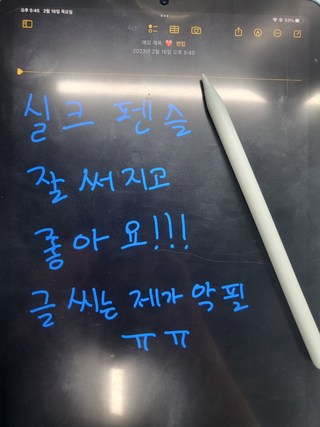 오후 9:46 2월 16일 목요일 53%
메모 제목: ❤️ 편집
2023년 2월 16일 오후 9:45
실크 펜슬
잘 써지고
좋아요!!!
글씨는 제가 악필
ㅠㅠ